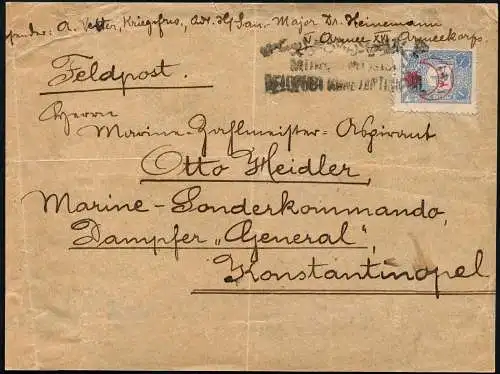 A. Vetter, Kriegsfrw., Adr. H/ San.-Major Dr. Heinemann
V. Armee XVI. Armeekorps.
Feldpost.
MILIT. MISSION
FELDPOST KONSTANTINOPEL
Herrn
Marine-Zahlmeister-Aspirant
Otto Heidler,
Marine-Sonderkommando,
Dampfer „General",
Konstantinopel